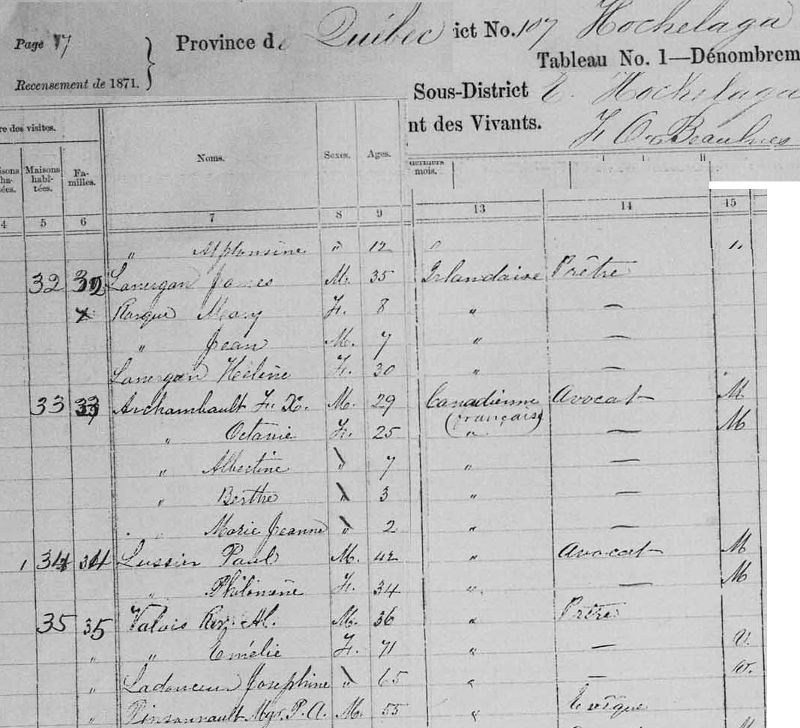 Page 17
Province de Québec
ict No. 107 Hochelaga
Recensement de 1871.
Tableau No. 1—Dénombrem
Sous-District E. Hochelaga
nt des Vivants.
re des visites.
Maisons habitées.
Familles.
Noms.
Sexes.
Ages.
derniers mois.
4 5 6 7 8 9 13 14 15
" Alphonsine " 12 " "
32 32 Lonergan James M. 35 Irlandaise Prêtre
x Mary F. 8 " —
" Jean M. 7 " —
Lonergan Hélène F. 30 " —
33 33 Archambault F. X. M. 29 Canadienne Avocat M
(française)
" Octavie F. 25 " — M
" Albertine " 7 " —
" Berthe " 3 " —
" Marie Jeanne " 2 " —
1 34 34 Lussier Paul M. 42 " Avocat M
" Philomène F. 34 " — M
35 35 Valois Rev. M. 36 " Prêtre
" " Emélie F. 71 " — V.
" Ladouceur Josephine " 65 " — V.
" Pinsonnault Mgr. P. A. M. 55 " Evêque
M